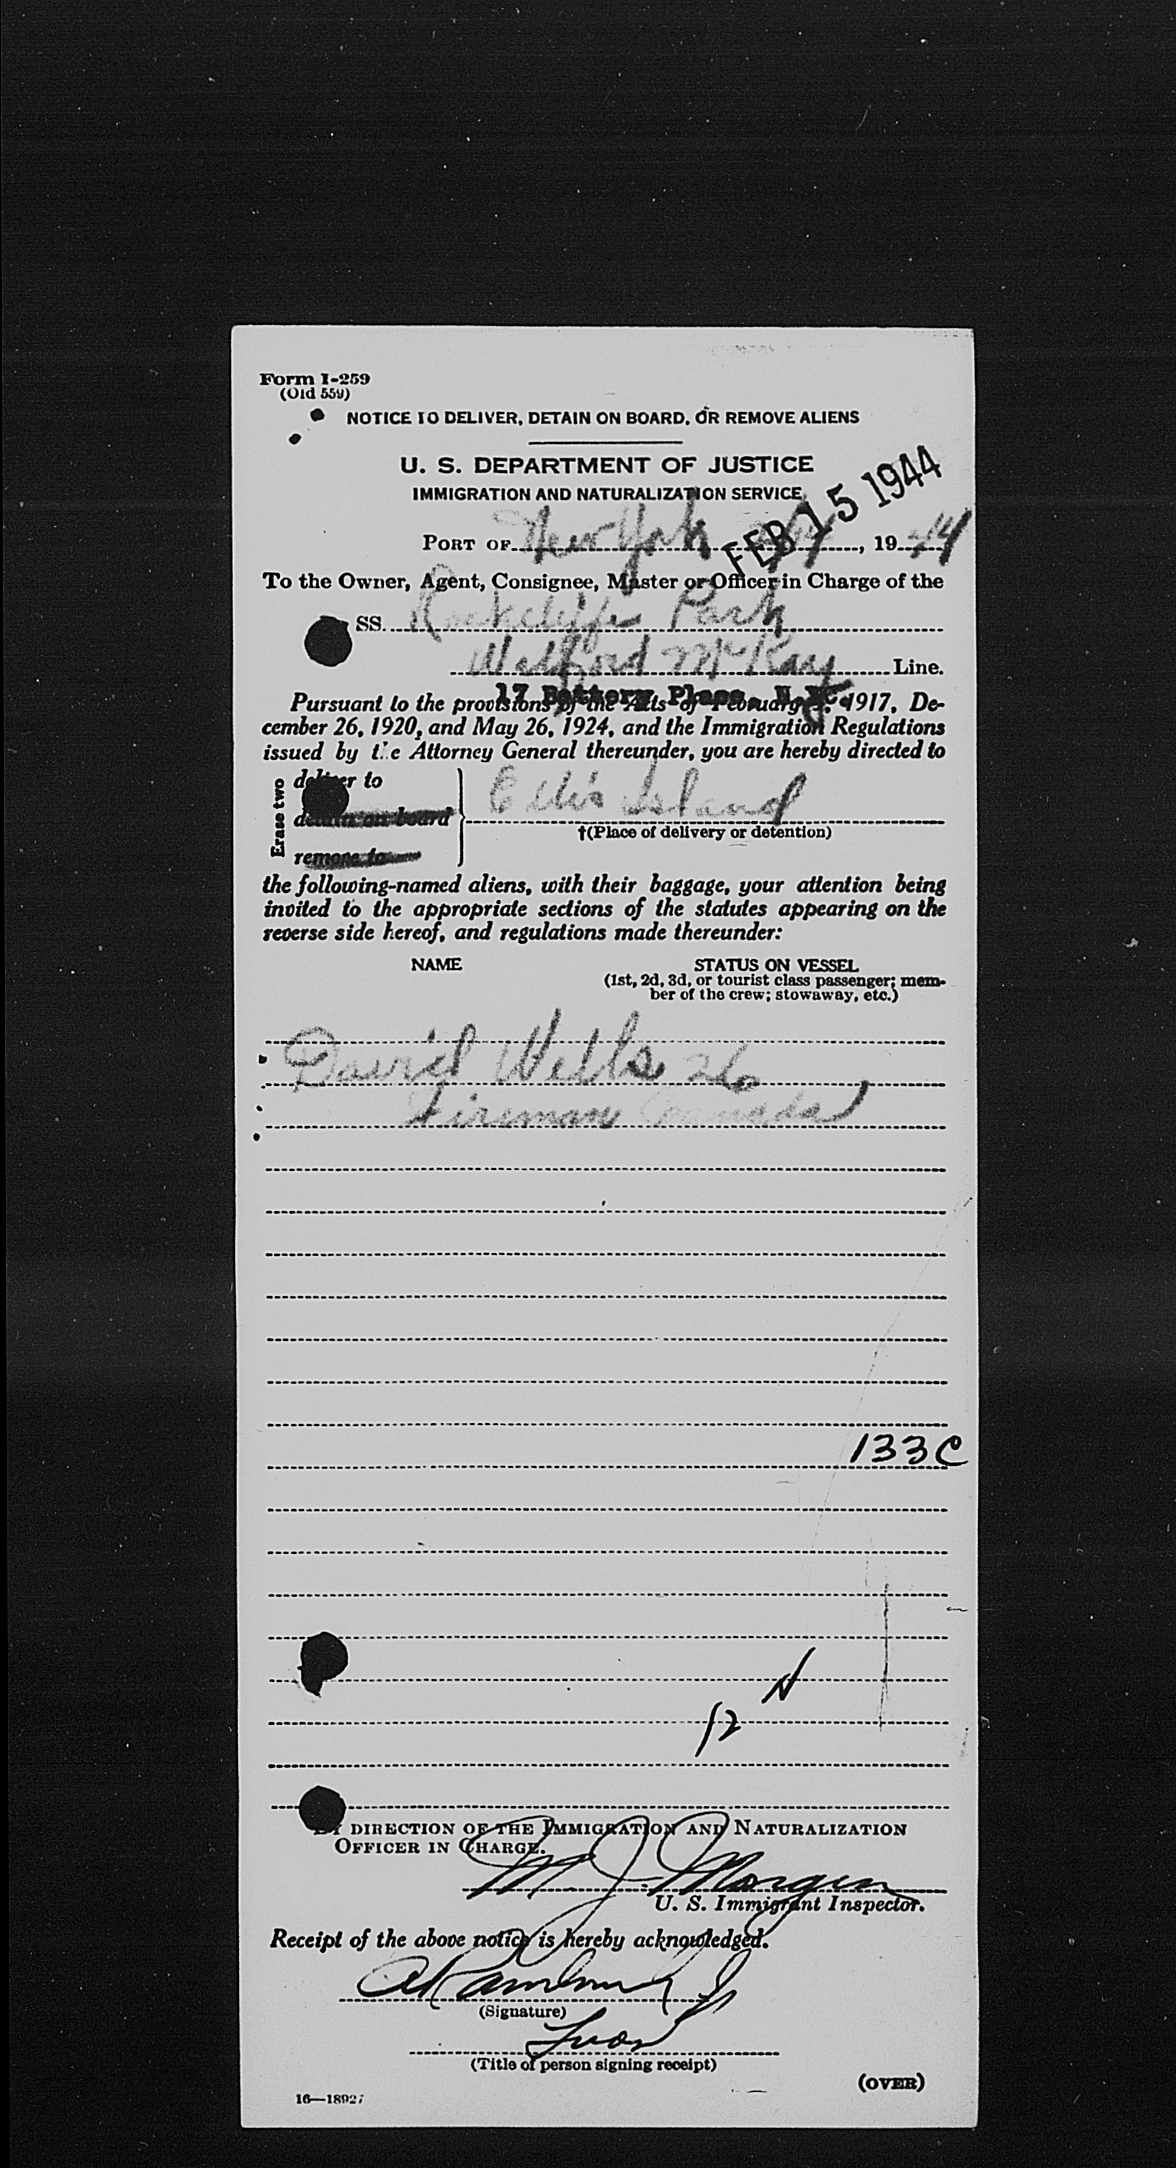 Form I-259
(Old 559)
NOTICE TO DELIVER, DETAIN ON BOARD, OR REMOVE ALIENS
U. S. DEPARTMENT OF JUSTICE
IMMIGRATION AND NATURALIZATION SERVICE
FEB 15 1944
PORT OF New York, 1944
To the Owner, Agent, Consignee, Master or Officer in Charge of the
SS. Rockcliffe Park
McKay Line.
17 Battery Place, N.Y.
Pursuant to the provisions of the Acts of February 5, 1917, De-
cember 26, 1920, and May 26, 1924, and the Immigration Regulations
issued by the Attorney General thereunder, you are hereby directed to
Erase two
deliver to
detain on board
remove to
Ellis Island
†(Place of delivery or detention)
the following-named aliens, with their baggage, your attention being
invited to the appropriate sections of the statutes appearing on the
reverse side hereof, and regulations made thereunder:
NAME STATUS ON VESSEL
(1st, 2d, 3d, or tourist class passenger; mem-
ber of the crew; stowaway, etc.)
David Wells 26
Fireman Canada
133C
12
BY DIRECTION OF THE IMMIGRATION AND NATURALIZATION
OFFICER IN CHARGE.
M. J. Morgan
U. S. Immigrant Inspector.
Receipt of the above notice is hereby acknowledged.
(Signature)
(Title of person signing receipt)
(OVER)
16—18927